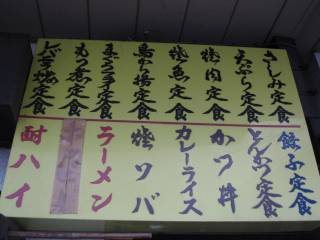 さしみ定食
天ぷら定食
焼肉定食
焼魚定食
鳥から揚定食
まぐろ定食
もつ煮定食
レバニラ焼定食
餃子定食
とんかつ定食
かつ丼
カレーライス
焼ソバ
ラーメン
酎ハイ